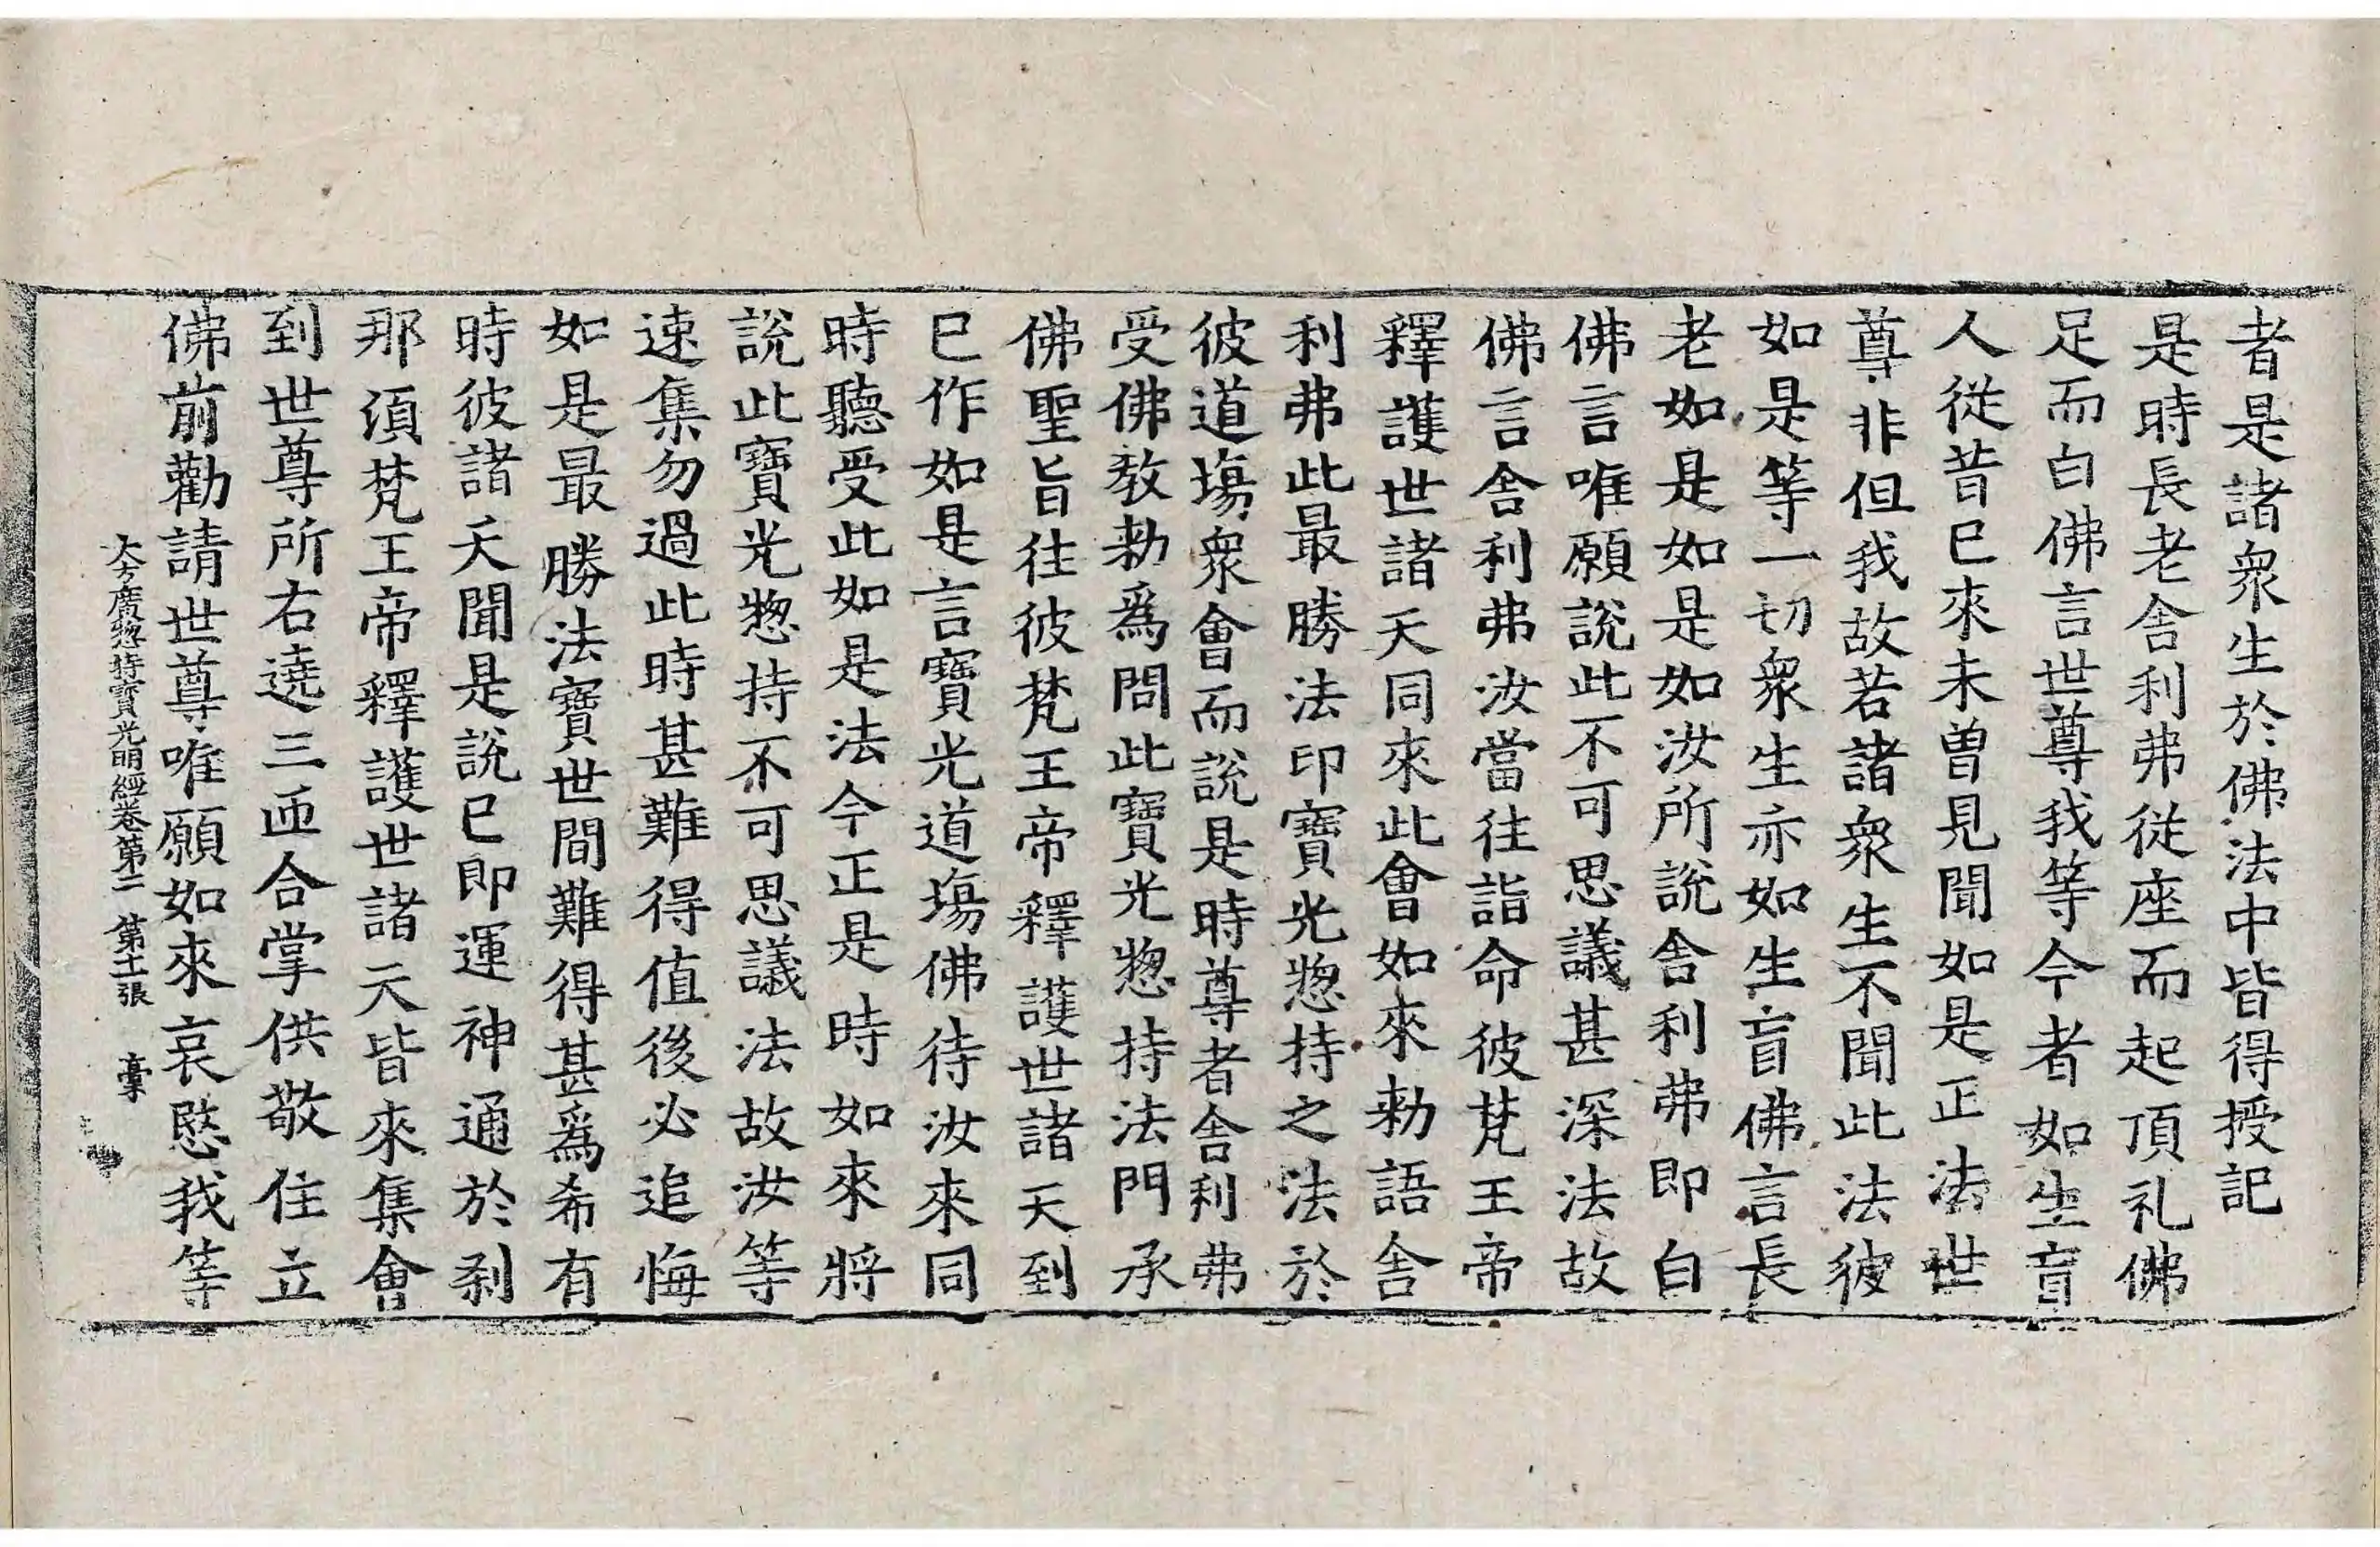 者是諸衆生於佛法中皆得授記
是時長老舍利弗從座而起頂礼佛
足而白佛言世尊我等今者如生盲
人從昔已來未曾見聞如是正法世
尊非但我故若諸衆生不聞此法彼
如是等一切衆生亦如生盲佛言長
老如是如是如汝所說舍利弗即白
佛言唯願說此不可思議甚深法故
佛言舍利弗汝當往詣命彼梵王帝
釋護世諸天同來此會如來勑語舍
利弗此最勝法印寶光惣持之法於
彼道場衆會而說是時尊者舍利弗
受佛教勑爲問此寶光惣持法門承
佛聖旨往彼梵王帝釋護世諸天到
已作如是言寶光道場佛待汝來同
時聽受此如是法今正是時如來將
說此寶光惣持不可思議法故汝等
速集勿過此時甚難得值後必追悔
如是最勝法寶世間難得甚爲希有
時彼諸天聞是說已即運神通於刹
那湏梵王帝釋護世諸天皆來集會
到世尊所右遶三匝合掌供敬住立
佛前勸請世尊唯願如來哀愍我等
大方廣惣持寶光明經卷第二 第十一張 槀